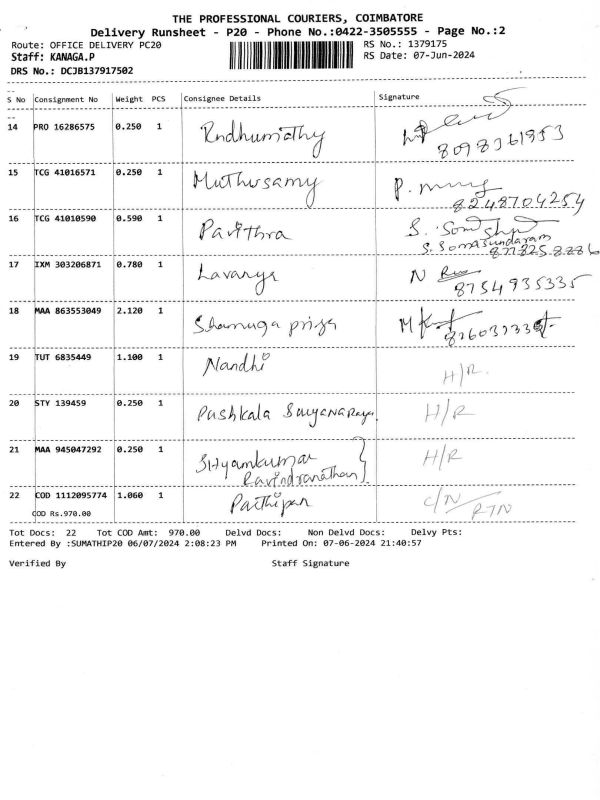 THE PROFESSIONAL COURIERS, COIMBATORE
Delivery Runsheet - P20 - Phone No.:0422-3505555 - Page No.:2
Route: OFFICE DELIVERY PC20 RS No.: 1379175
Staff: KANAGA.P RS Date: 07-Jun-2024
DRS No.: DCJB137917502
S No Consignment No Weight PCS Consignee Details Signature
14 PRO 16286575 0.250 1 Indhumathy
8098361953
15 TCG 41016571 0.250 1 Muthusamy P.
8248704254
16 TCG 41010590 0.590 1 Pavithra S.
S. Somasundaram
17 IXM 303206871 0.780 1 Lavanya N
8754935335
18 MAA 863553049 2.120 1 Shanuga priya M
19 TUT 6835449 1.100 1 Nandhi H/R.
20 STY 139459 0.250 1 Pushkala H/R
21 MAA 945047292 0.250 1 Shyamkumar H/R
Ravindranathan
22 COD 1112095774 1.060 1 Parthipan C/N
COD Rs.970.00 RTN
Tot Docs: 22 Tot COD Amt: 970.00 Delvd Docs: Non Delvd Docs: Delvy Pts:
Entered By :SUMATHIP20 06/07/2024 2:08:23 PM Printed On: 07-06-2024 21:40:57
Verified By Staff Signature